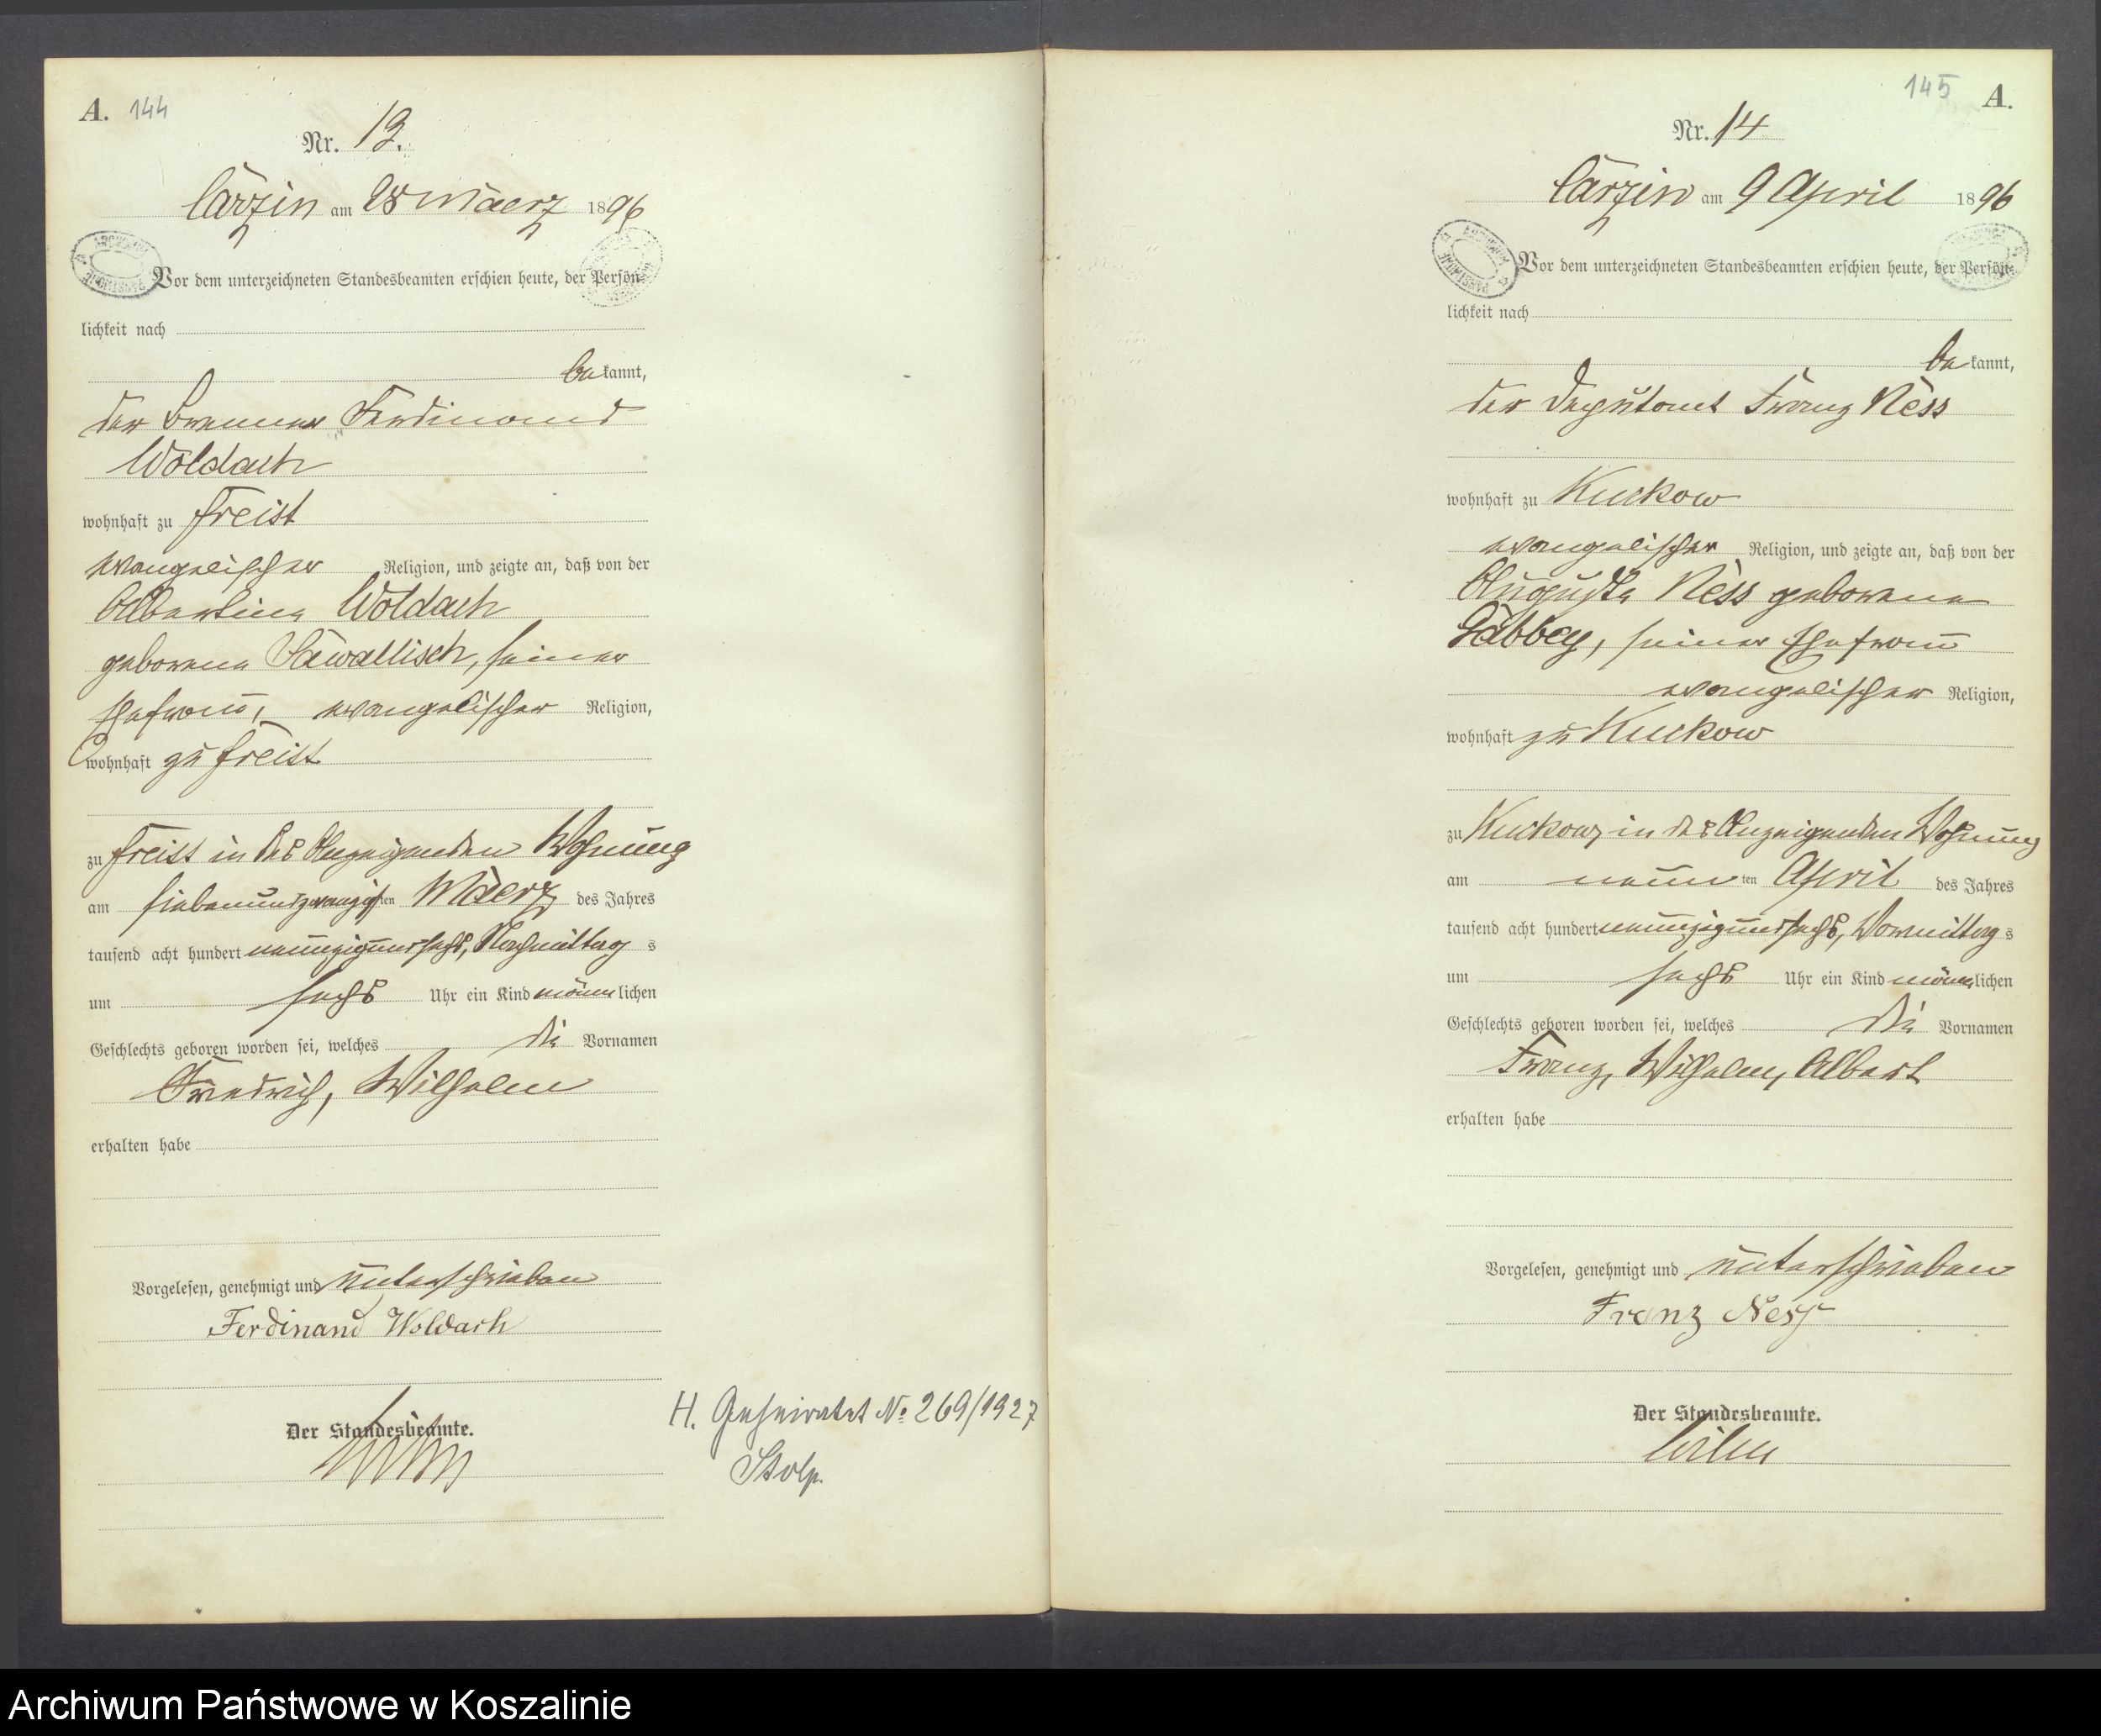 A. 144
Nr. 13.
Carzin am 28 Maerz 1896
Vor dem unterzeichneten Standesbeamten erschien heute, der Persön-
lichkeit nach
bekannt,
der Brenner Ferdinand
Woldach
wohnhaft zu Freist
evangelischer Religion, und zeigte an, daß von der
Albertine Woldach
geborene Sawallisch, seiner
Ehefrau, evangelischer Religion,
wohnhaft zu Freist
zu Freist in des Anzeigenden Wohnung
am siebenundzwanzigsten Maerz des Jahres
tausend acht hundert neunzigundsechs, Nachmittags
um sechs Uhr ein Kind männlichen
Geschlechts geboren worden sei, welches die Vornamen
Friedrich, Wilhelm
erhalten habe
Vorgelesen, genehmigt und unterschrieben
Ferdinand Woldach
Der Standesbeamte.
H. Geheiratet No 269/1927
Stolp.
145 A.
Nr. 14
Carzin am 9 April 1896
Vor dem unterzeichneten Standesbeamten erschien heute, der Persön-
lichkeit nach
bekannt,
der Deputant Franz Ness
wohnhaft zu Kuckow
evangelischer Religion, und zeigte an, daß von der
Auguste Ness geborene
Gabbey, seiner Ehefrau
evangelischer Religion,
wohnhaft zu Kuckow
zu Kuckow, in des Anzeigenden Wohnung
am neunten April des Jahres
tausend acht hundert neunzigundsechs, Vormittags
um sechs Uhr ein Kind männlichen
Geschlechts geboren worden sei, welches die Vornamen
Franz, Wilhelm, Albert
erhalten habe
Vorgelesen, genehmigt und unterschrieben
Franz Ness
Der Standesbeamte.
Archiwum Państwowe w Koszalinie